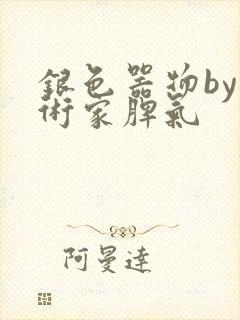 銀色器物by
術家脾氣
阿曼達